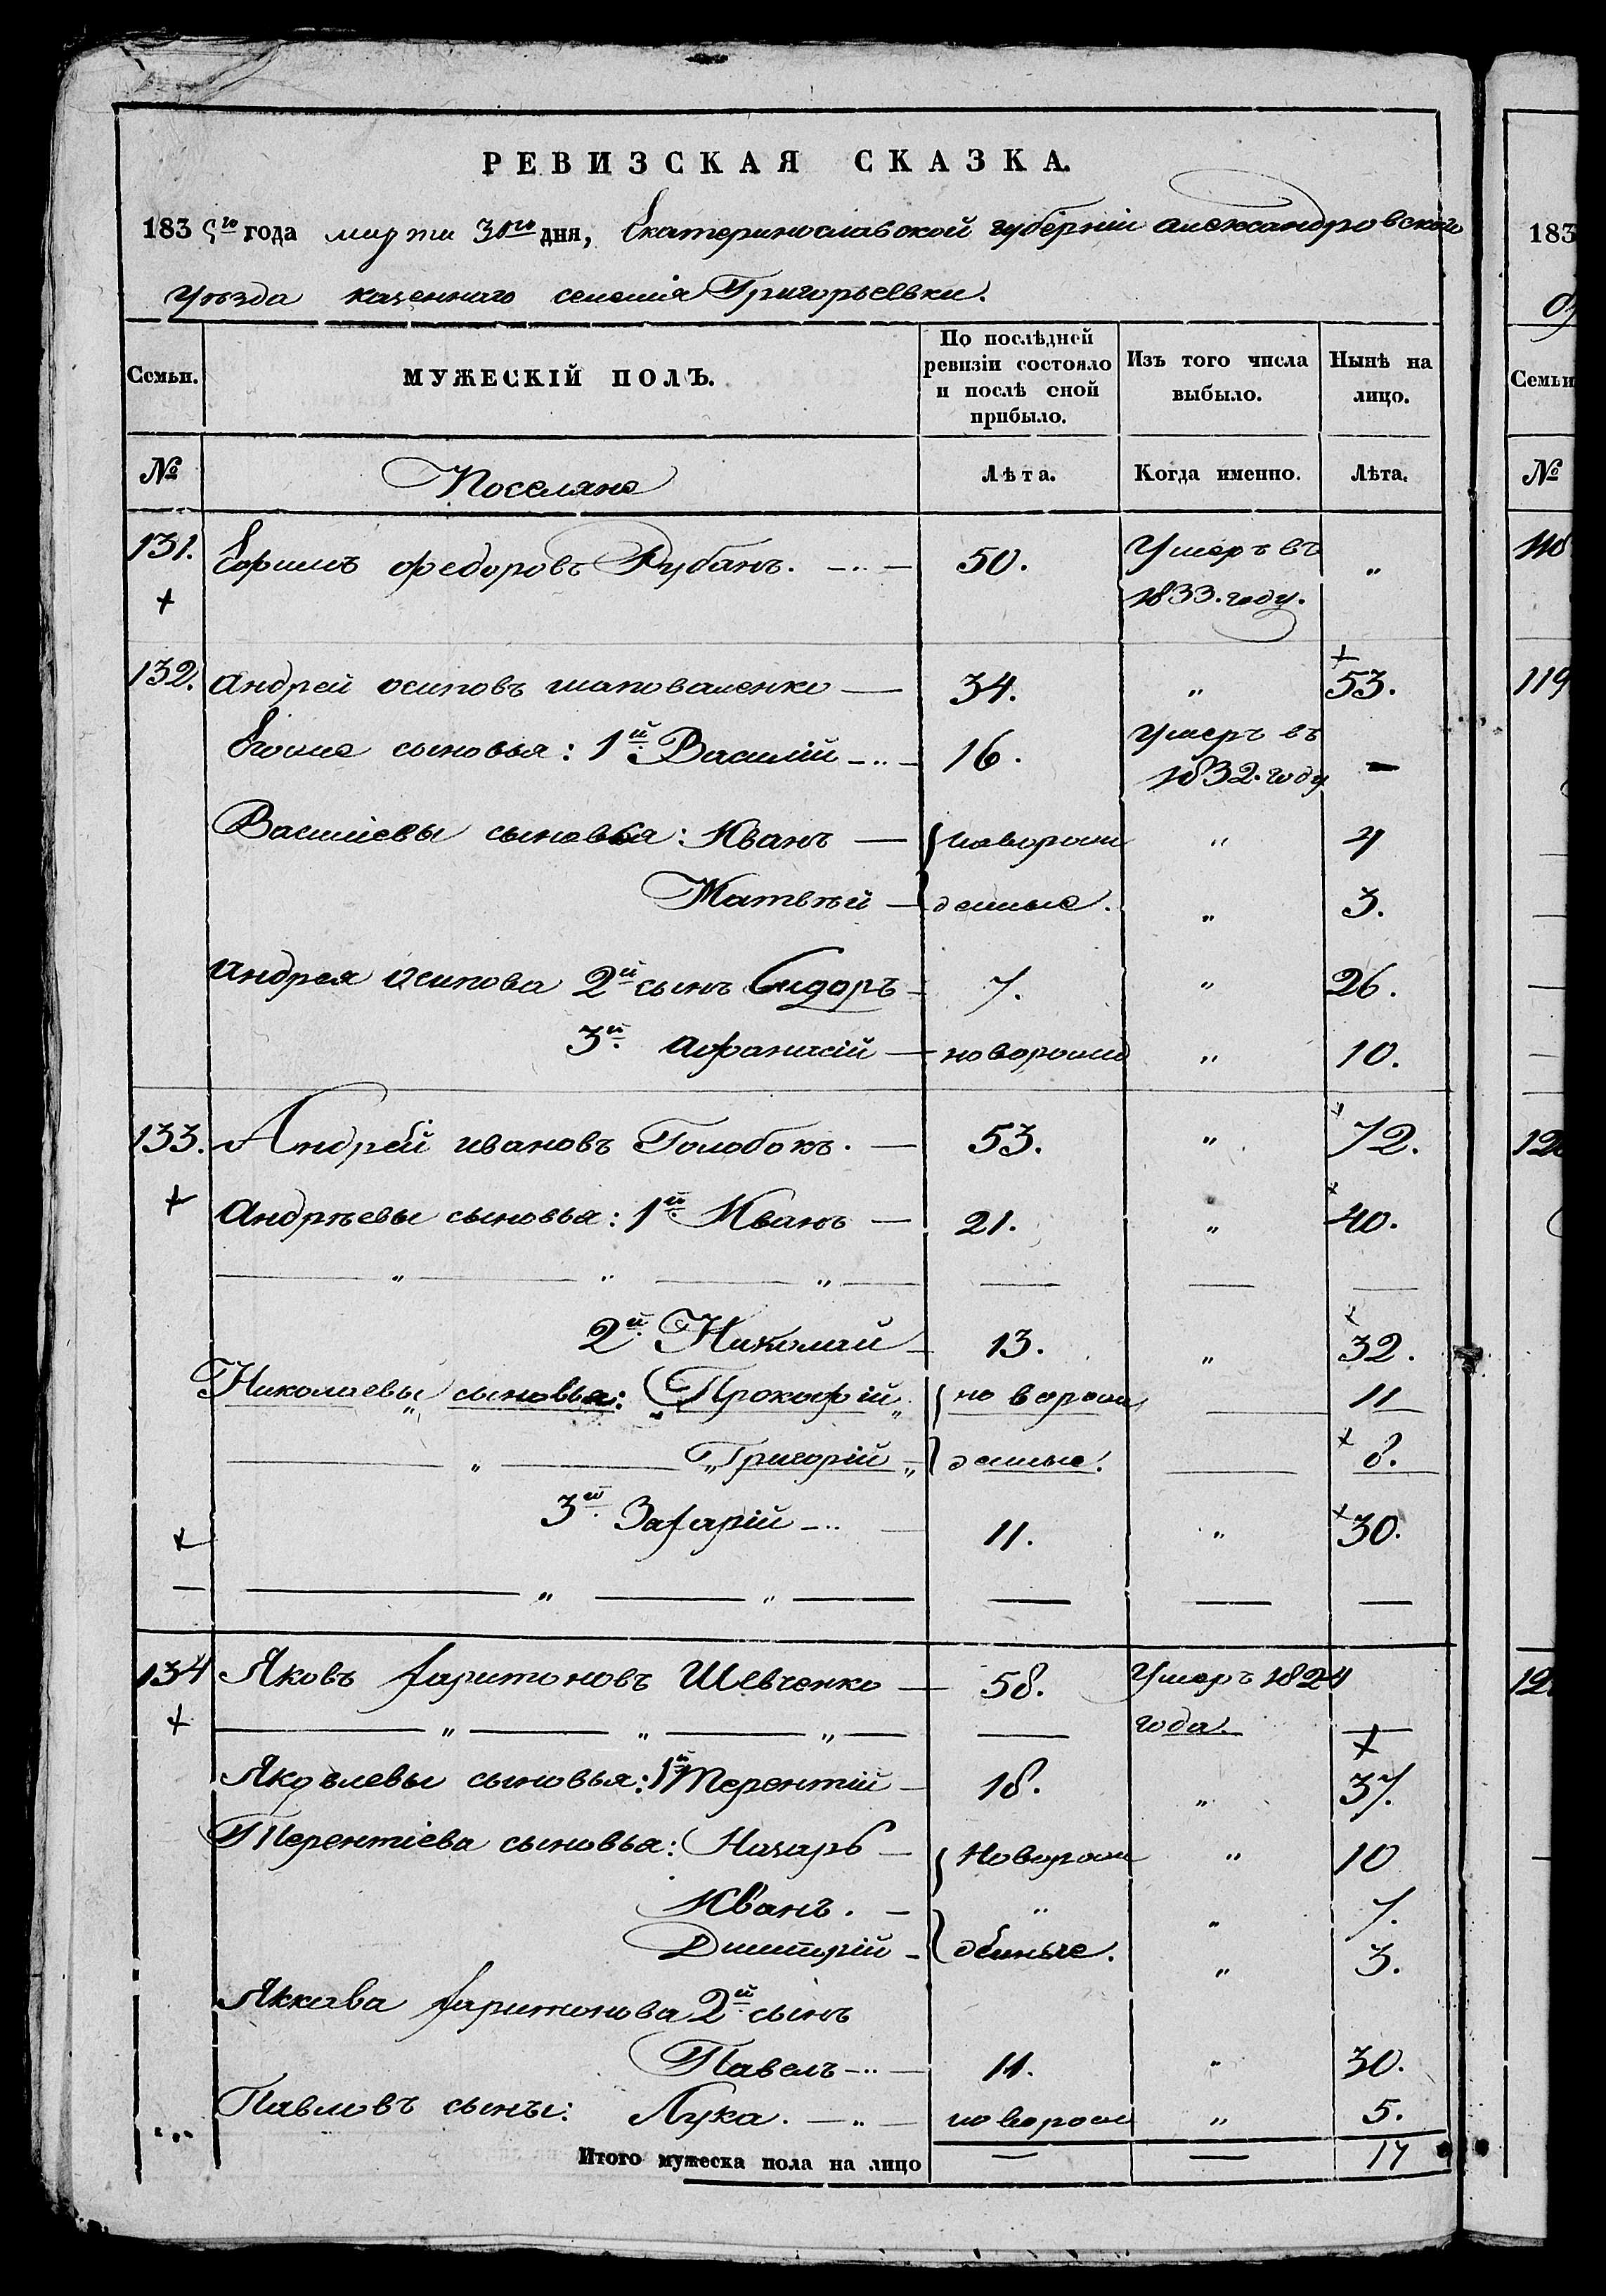 РЕВИЗСКАЯ СКАЗКА.
183 5го года марта 30го дня, Екатеринославской губерніи александровского
уѣзда казеннаго селенія Григорьевки.
Семьи. МУЖЕСКІЙ ПОЛЪ. По послѣдней ревизіи состояло и послѣ оной прибыло. Изъ того числа выбыло. Нынѣ на лицо.
№ Поселяне Лѣта. Когда именно. Лѣта.
131. Ефимъ федоровъ Рубанъ. 50. Умеръ въ 1833. году. „
132. андрей осиповъ шаповаленко — 34. „ 53.
Егоже сыновья: 1й Василій 16. Умеръ въ 1832. году —
Василіевы сыновья: Иванъ — новорож „ 4
Матвѣй — денные. „ 3.
андрея осипова 2й сынъ Сидоръ 7. „ 26.
3й афанасій — новорожд „ 10.
133. Андрей ивановъ Голобокъ. — 53. „ 72.
андрѣевы сыновья: 1й Иванъ — 21. „ 40.
2й Николай 13. „ 32.
Николаевы сыновья: Прокофій новорож 11
Григорій денные. 8.
3й Захарій 11. „ 30.
134 Яковъ харитоновъ Шевченко — 58. Умеръ 1824
года.
Яковлевы сыновья: 1й Терентій — 18. „ 37.
Терентіева сыновья: Назаръ — Новорож „ 10
Иванъ. — „ „ 7.
Димитрій — денные. „ 3.
Якова харитонова 2й сынъ
Павелъ 11. „ 30.
Павловъ сынъ: Лука. новорож „ 5.
Итого мужеска пола на лицо — — 17
183
Семьи
№
119